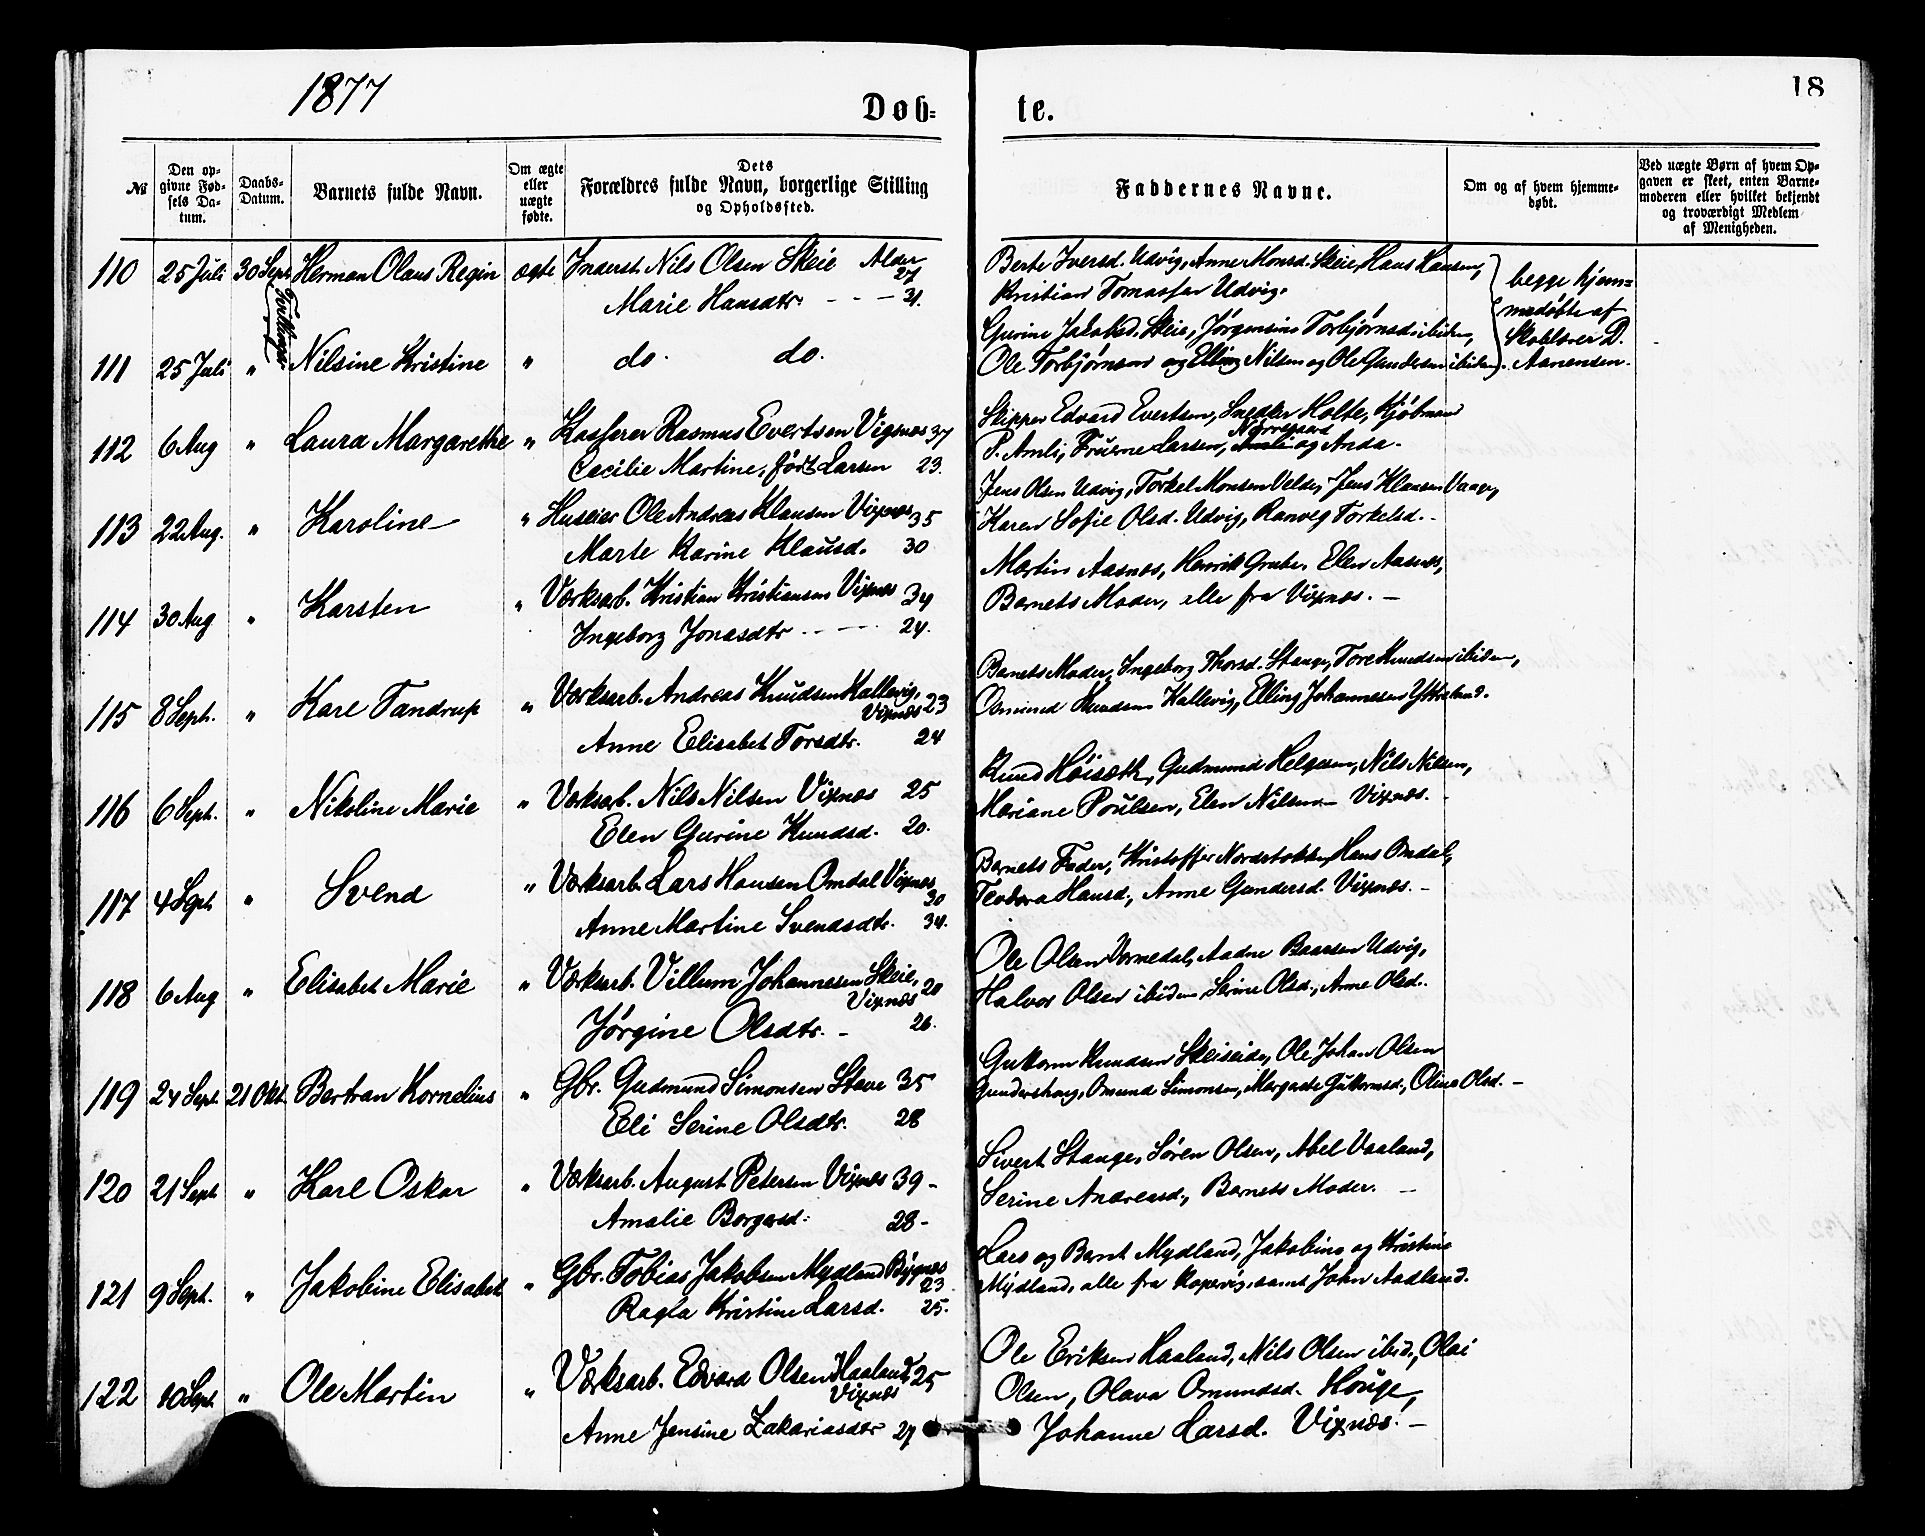 1877
18
Døb-
te.
№
Den op-
givne Fød-
sels Da-
tum.
Daabs-
Datum.
Barnets fulde Navn.
Om ægte
eller
uægte
fødte.
Dets
Forældres fulde Navn, borgerlige Stilling
og Opholdssted.
Faddernes Navne.
Om og af hvem hjemme-
døbt.
Ved uægte Børn af hvem Op-
gaven er skeet, enten Barne-
moderen eller hvilket bekjendt
og troværdigt Medlem
af Menigheden.
110 25 Juli 30 Sept. Herman Olaus Regin ægte Inderst. Nils Olsen Skeie Alder 27
Marie Hansdtr. - - - 31.
Berte Iversd. Udvig, Anne Monsd. Skeie, Hans Hansen,
Kristian Tomassen Udvig.
begge hjem-
medøbte af
Skolelærer D.
Aanensen.
Tvillinger
111 25 Juli " Nilsine Kristine " do. do.
Gurine Jakobsd. Skeie, Jørgensine Torbjørnsd. ibidem,
Ole Torbjørnsen og Elling Nilsen og Ole Gundersen ibidem.
112 6 Aug " Laura Margarethe " Kasserer Rasmus Evertsen Vigsnæs 37
Cecilie Martine, født Larsen 23.
Skipper Edvard Evertsen, Snedker Holte, Kjøbmand
Nørregaard
P. Amli, Fruerne Larsen, Amli og Anda.
113 22 Aug. " Karoline " Huseier Ole Andreas Klausen Vixnæs 35
Marte Karine Klausd. 30
Jens Olsen Udvig, Torkel Monsen Velde, Jens Klausen Vaage,
Karen Sofie Olsd. Udvig, Ranveg Torkelsd. -
114 30 Aug " Karsten " Værksarb. Kristian Kristiansen Vixnæs 34
Ingeborg Jonasdtr - - - 24.
Martin Aasnes, Henrik Gruber, Elen Aasnes,
Barnets Moder, alle fra Vixnæs. -
115 8 Sept. " Karl Tandrup " Værksarb. Andreas Knudsen Hallevig,
Vixnæs 23
Anne Elisabet Torsdtr. 24
Barnets Moder, Ingeborg Thorsd. Stange, Tore Knudsen ibidem,
Osmund Knudsen Hallevig, Elling Johannesen Ytreland.
116 6 Sept. " Nikoline Marie " Værksarb. Nils Nilsen Vixnæs 25
Elen Gurine Knudsd. 20.
Knud Høisæth, Gudmund Helgesen, Nils Nilsen,
Mariane Poulsen, Elen Nilsen - Vixnæs. -
117 4 Sept. " Svend " Værksarb. Lars Hansen Omdal Vixnæs
30
Anne Martine Svendsdtr. 34.
Barnets Fader, Kristoffer Nordstokke, Hans Omdal,
Teodora Hansd., Anne Gundersd. Vixnæs. -
118 6 Aug " Elisabet Marie " Værksarb. Villum Johannesen Skeie,
Vixnæs 20
Jørgine Olsdtr. - 26.
Ole Olsen Vormedal, Aadne Baarsen Udvig,
Halvor Olsen ibidem Serine Olsd., Anne Olsd.
119 24 Sept. 21 Okt. Bertran Kornelius " Gbr. Gudmund Simonsen Stave 35
Eli Serine Olsdtr. 28
Guttorm Knudsen Skeiseide, Ole Johan Olsen
Gundershaug, Omund Simonsen, Margrete Guttormsd., Olina Olsd. -
120 21 Sept " Karl Oskar " Værksarb. August Petersen Vixnæs 39 -
Amalie Borgersd: 28 -
Sivert Stange, Søren Olsen, Abel Vaaland,
Serine Andreasd., Barnets Moder. -
121 9 Sept. " Jakobine Elisabet " Gbr. Tobias Jakobsen Mydland Bygnes
23
Ragla Kristine Larsd. 25.
Lars og Bernt Mydland, Jakobine og Kristine
Mydland, alle fra Kopervig, samt John Aadland.
122 10 Sept. " Ole Martin " Værksarb. Edvard Olsen Haaland 25
Vixnæs
Anne Jensine Zakariasdtr 27
Ole Eriksen Haaland, Nils Olsen ibid., Olai
Olsen, Olava Omundsd. Houge,
Johanne Larsd. Vixnæs. -